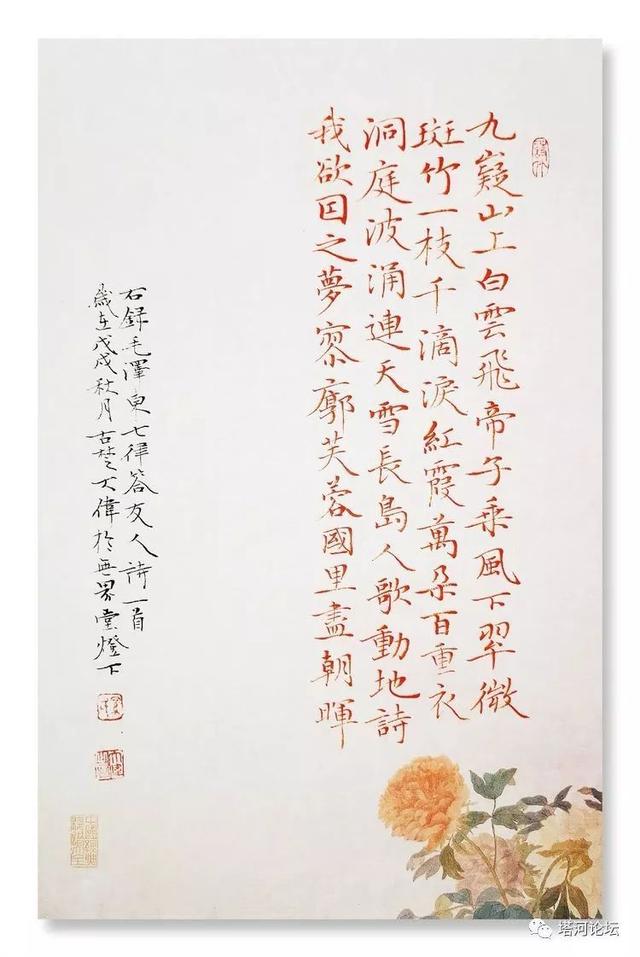 九嶷山上白雲飛帝子乘風下翠微
斑竹一枝千滴淚紅霞萬朵百重衣
洞庭波涌連天雪長島人歌動地詩
我欲因之夢寥廓芙蓉國里盡朝暉
右録毛澤東七律答友人詩一首
歲在戊戌秋月古楚大偉於無界堂燈下
塔河论坛